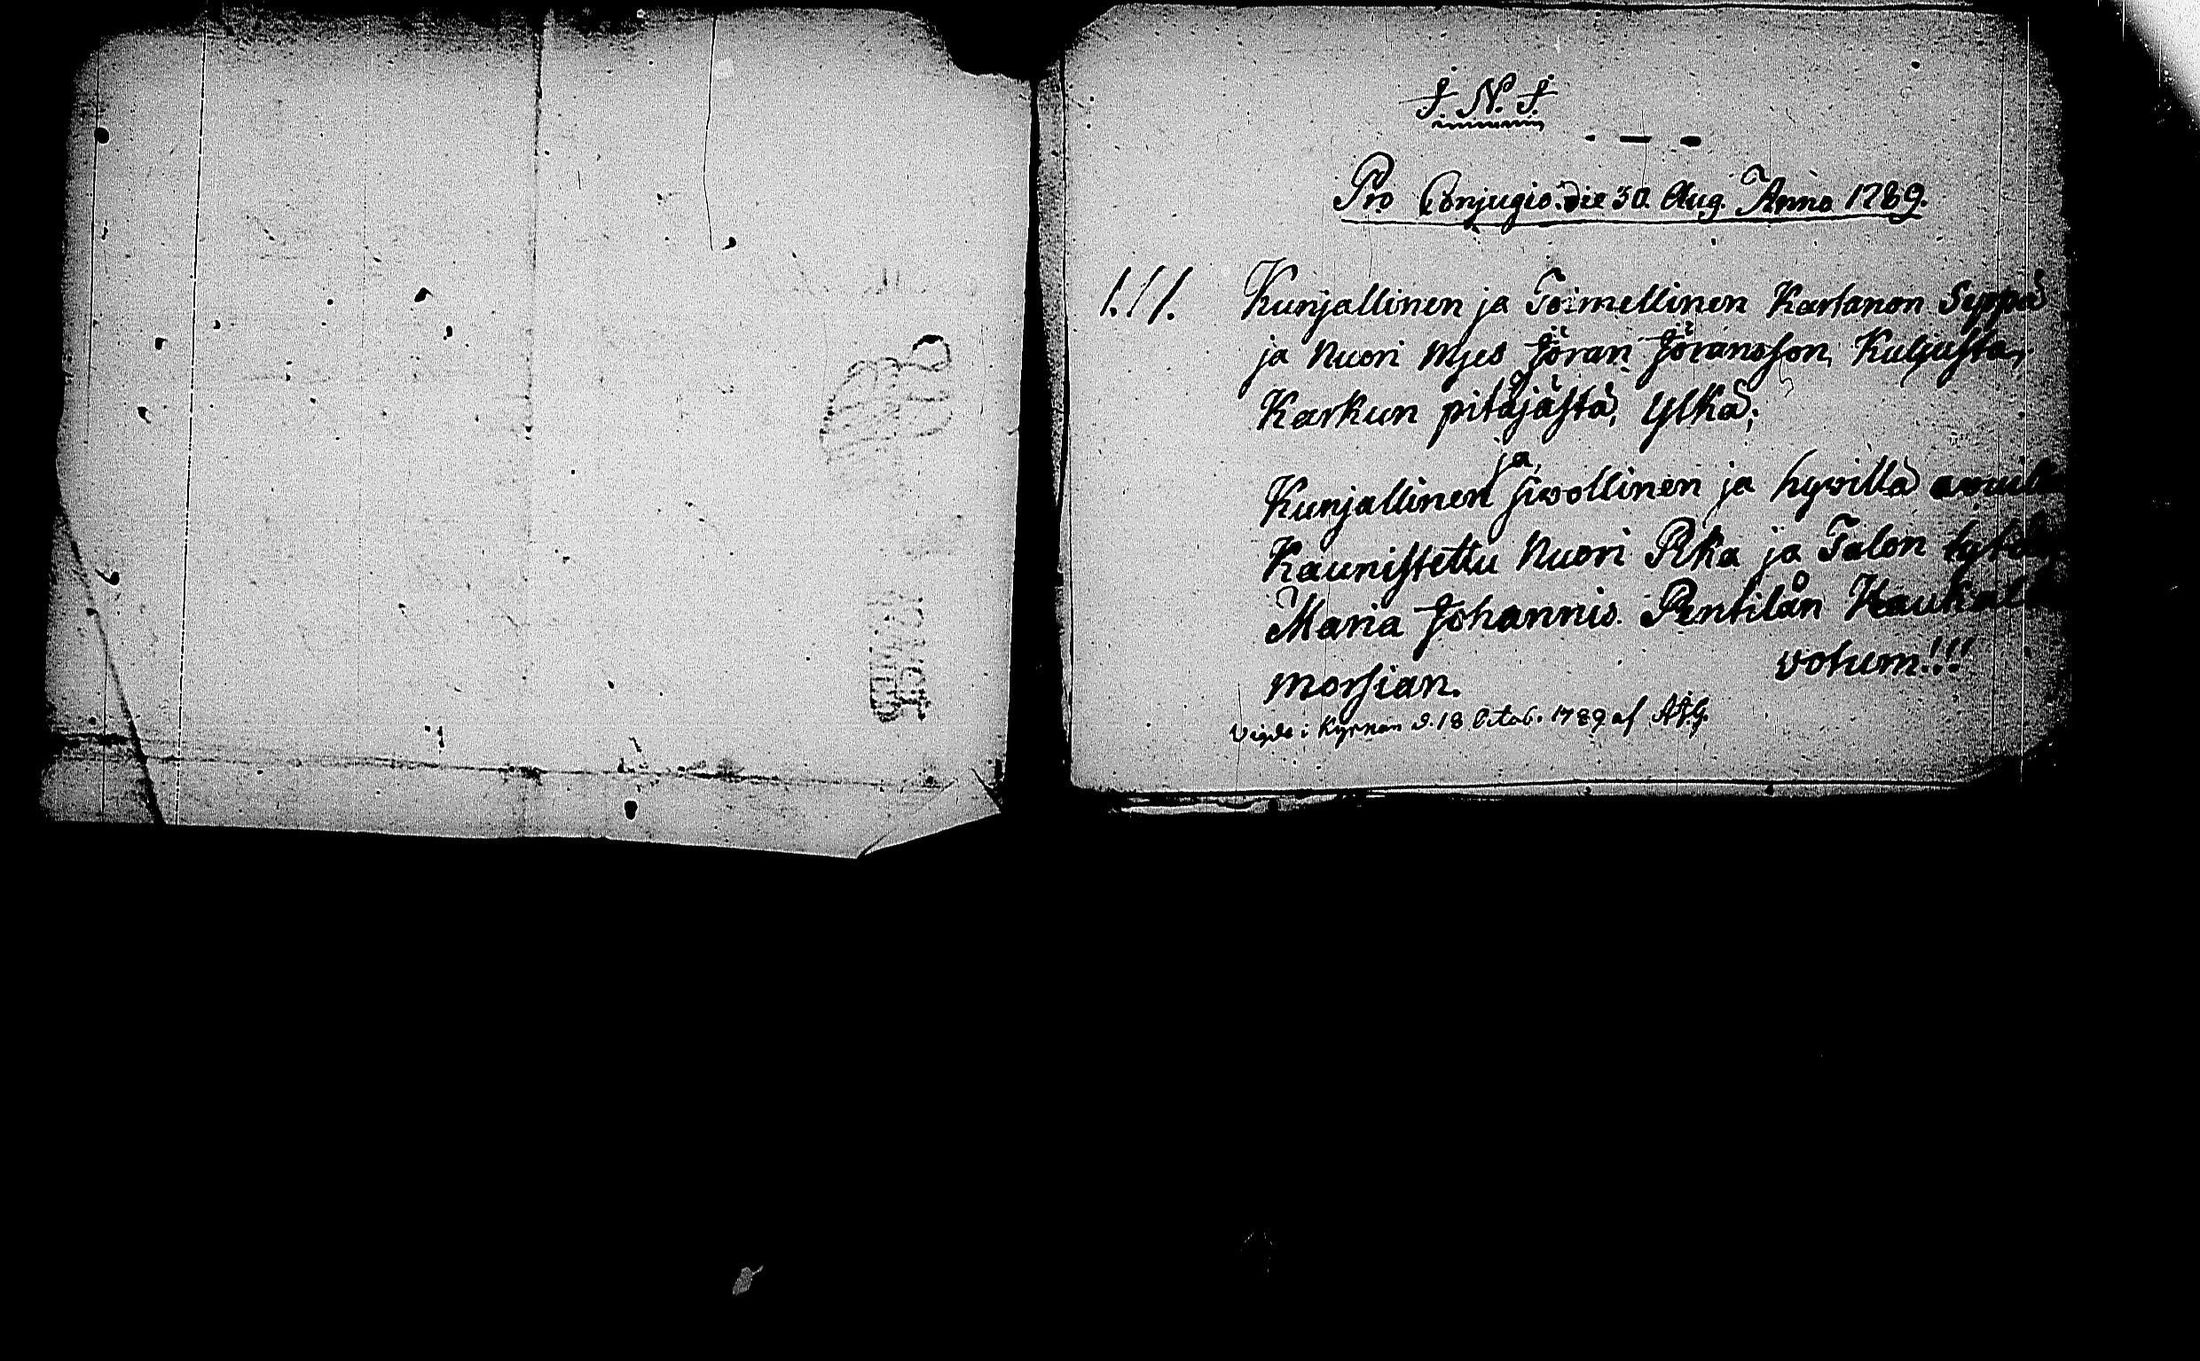 J. N. J.
Pro Conjugio die 30 Aug. Anno 1789.
1./1/. Kunjallinen ja Toimellinen Kartanon Seppä
ja Nuori Mjes Jöran Jöransson, Kuljusta,
Karkun pitäjästä, Ylkä;
ja,
Kunjallinen siwollinen ja hywillä
Kaunistettu Nuori Pika ja Talon
Maria Johannis. Pentilän
morsian. votum!!!
Vigde i Kyrkan d. 18 Octob. 1789 af